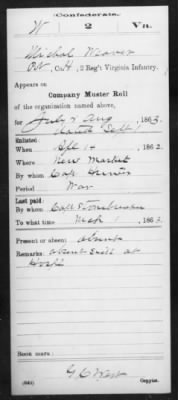 Confederate.
W 2 Va.
Michal Weaver
Co. H., 2 Reg't Virginia Infantry.
Appears on
Company Muster Roll
of the organization named above,
for July & Aug 1863.
Enlisted:
When Apl 14 1862
Where New Market
By whom Cap
Period War
Last paid:
By whom Cap
To what time Mch 1 1863
Present or absent: absent
Remarks: absent Sick at
Hospl
Book mark:
(642) G C West Copyist.